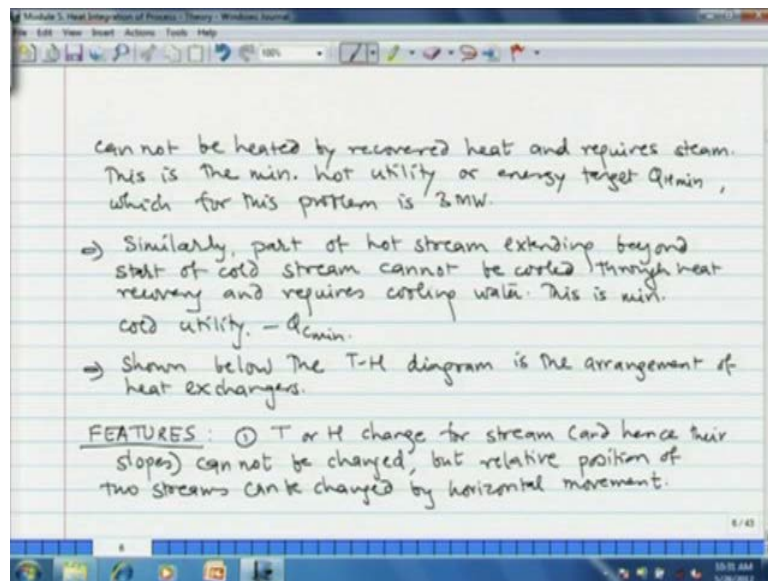 Module 5. Heat Integration of Process - Theory - Windows Journal
File Edit View Insert Actions Tools Help
100%
can not be heated by recovered heat and requires steam.
This is the min. hot utility or energy target QHmin,
which for this problem is 3 MW.
⇒ Similarly, part of hot stream extending beyond
start of cold stream cannot be cooled through heat
recovery and requires cooling water. This is min.
cold utility. - QCmin.
⇒ Shown below the T-H diagram is the arrangement of
heat exchangers.
FEATURES : ① T or H change for stream (and hence their
slopes) can not be changed, but relative position of
two streams can be changed by horizontal movement.
6/43
6
10:31 AM